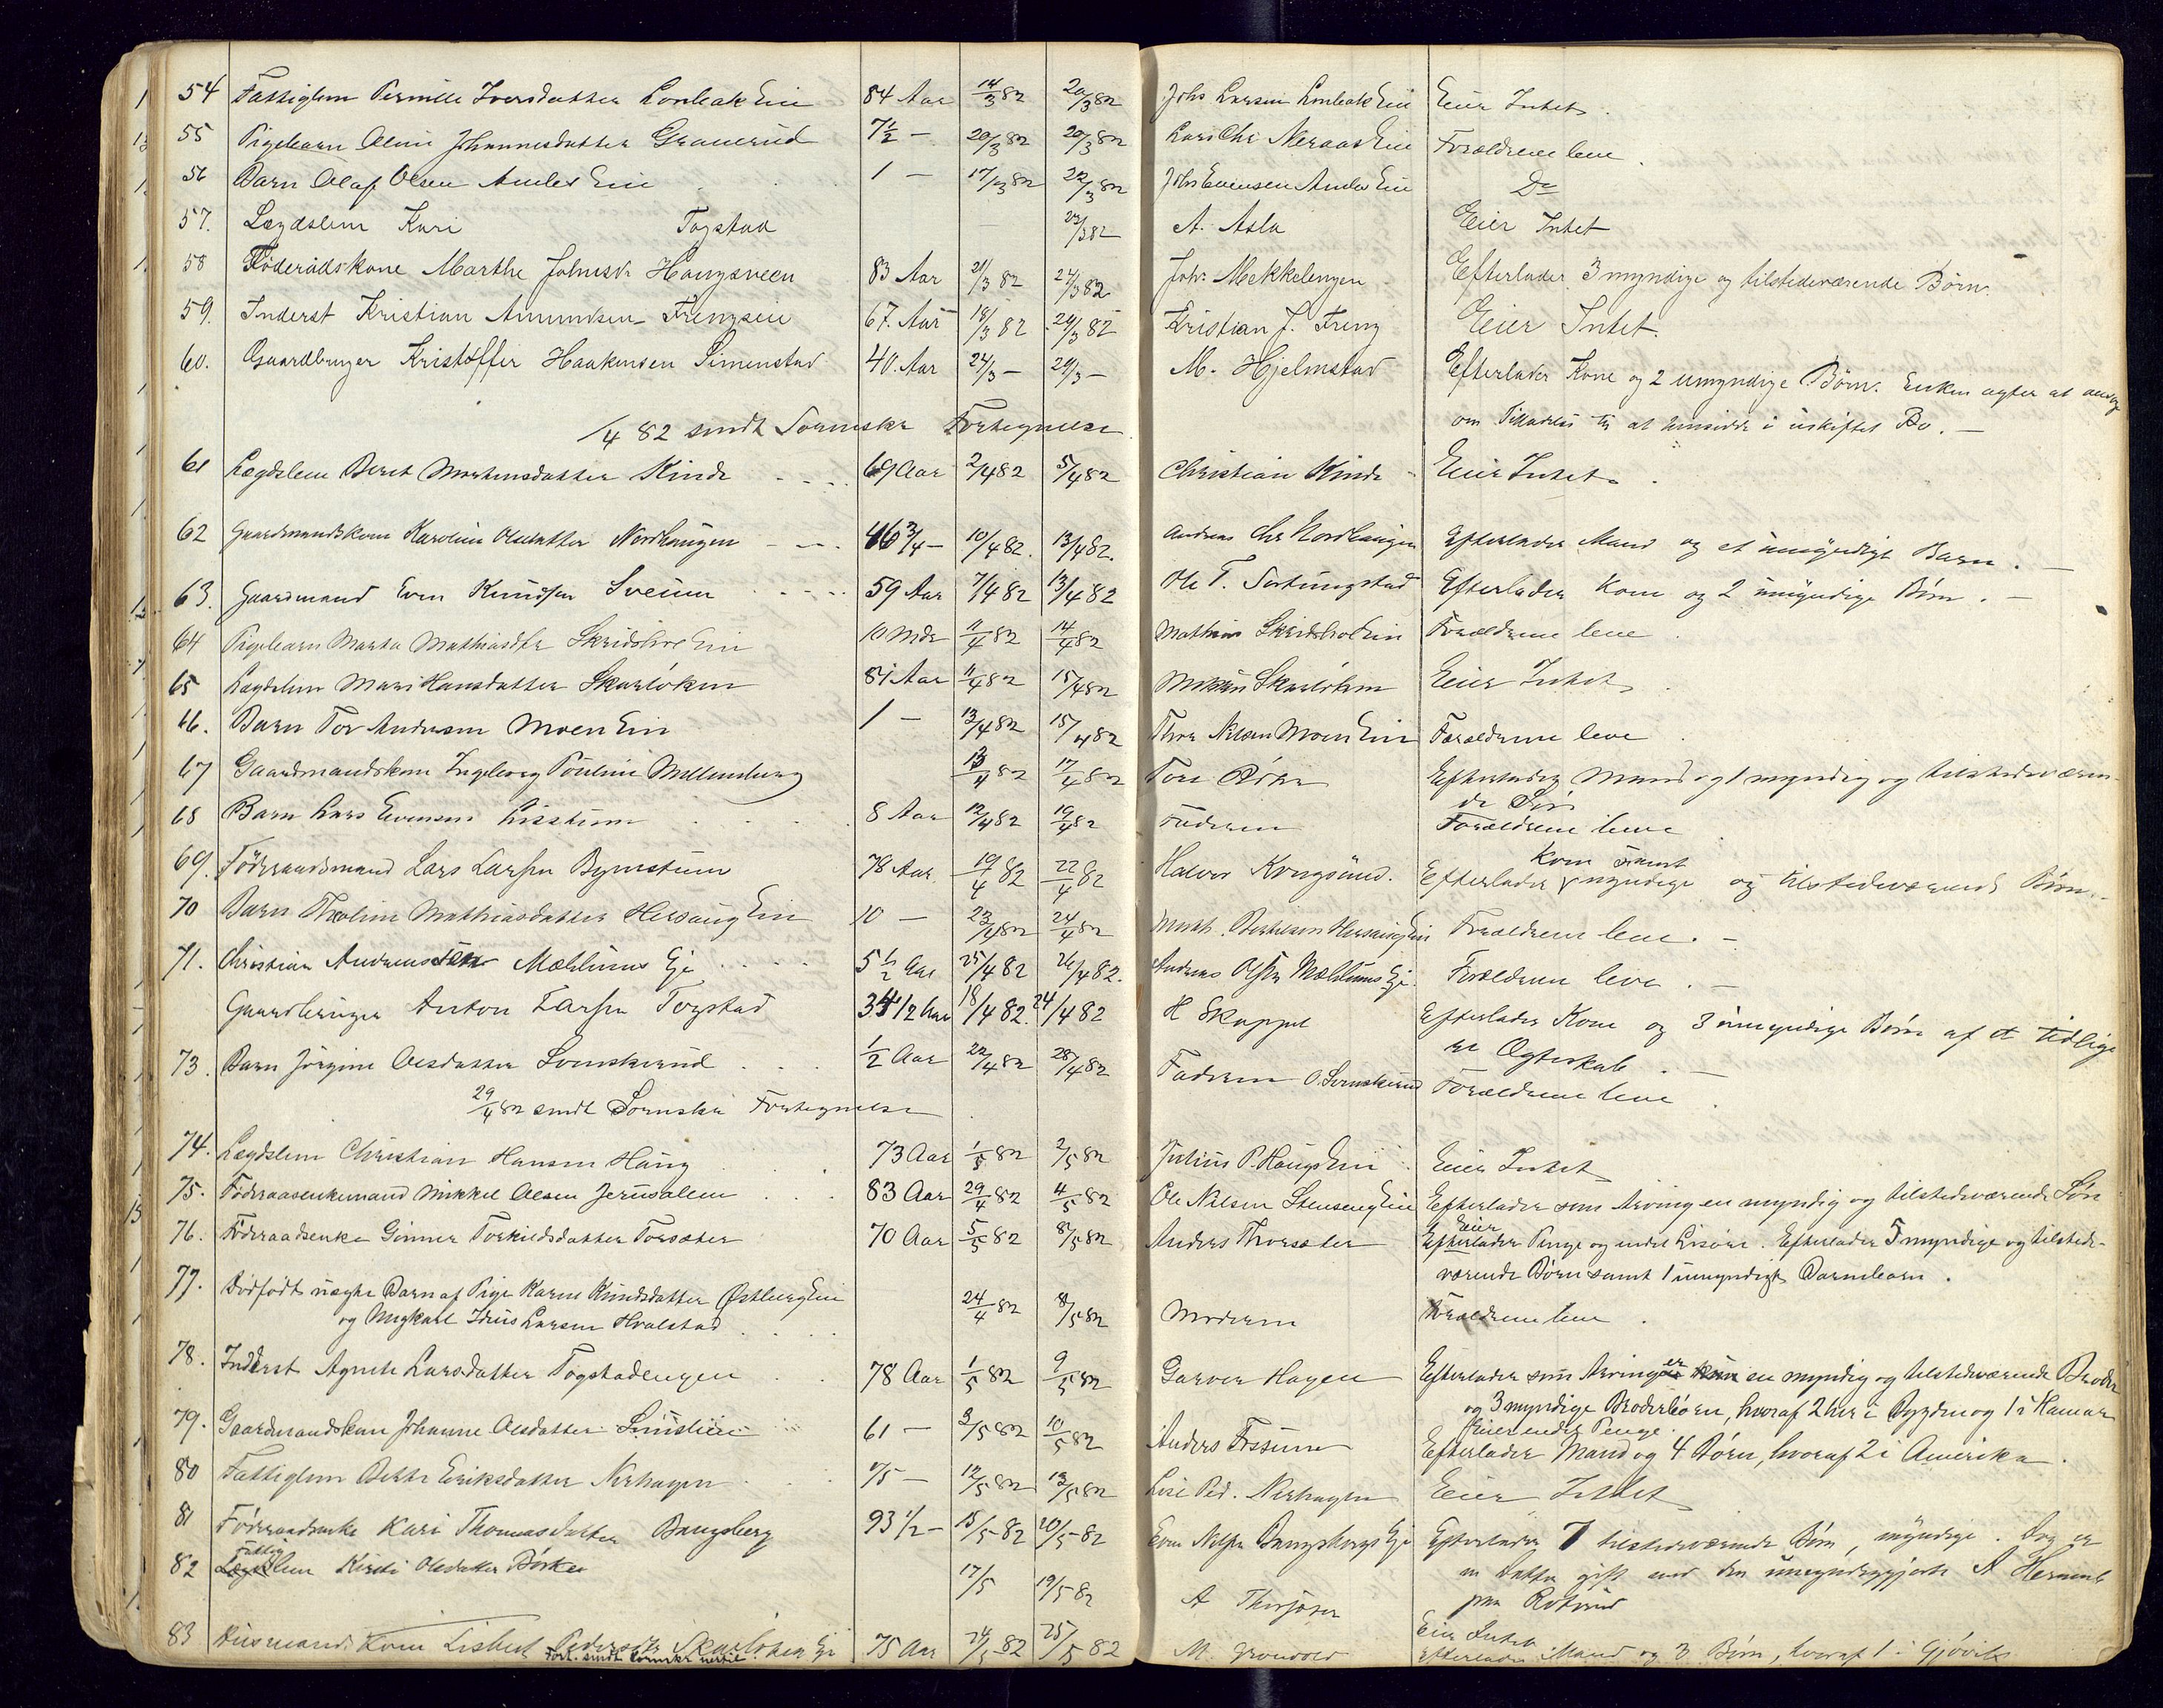 54 Fattiglem Pernille Iversdatter Eie 84 Aar 14/3 82 20/3 82 Johs Larsen Eie Eier Intet.
55 Pigebarn Oline Johannesdatter Grauerud 7½ — 20/3 82 20/3 82 Lars Chr Neraas Eie Forældrene leve.
56 Barn Olaf Olsen Amlis Eie 1 — 17/3 82 22/3 82 Johs Evensen Amlis Eie Do
57. Lægdslem Kari Togstad — 22/3 82 A. Asla Eier Intet
58 Föderådskone Marthe Johnsdr Haugsveen 83 Aar 21/3 82 24/3 82 Joh. Mekkelengen Efterlader 3 myndige og tilstedeværende Børn.
59. Inderst Kristian Amundsen Frengseie 67. Aar 18/3 82 24/3 82 Kristian J. Freng Eier Intet.
60. Gaardbruger Kristoffer Haakensen Simenstad 40. Aar 24/3 — 29/3 — M. Hjelmstad Efterlader Kone og 2 umyndige Børn. Enken agter at ansøge
om Tilladelse til at hensidde i uskiftet Bo. —
/4 82 sendt Sorenskr Fortegnelse
61 Lægdslem Beret Mortensdatter Kinde 69 Aar 2/4 82 5/4 82 Christian Kinde Eier Intet.
62 Gaardmandskone Karoline Olsdatter Nordhaugen 46 3/4 — 10/4 82. 13/4 82. Andreas Chr Nordhaugen Efterlader Mand og et umyndigt Barn. —
63. Gaardmand Even Knudsen Sveum 59 Aar 7/4 82 13/4 82 Ole T. Sortungstad Efterlader Kone og 2 umyndige Børn. —
64 Pigebarn Marta Mathiasdtr Skridshol Eie 10 Mdr 11/4 82 14/4 82 Mathias Skridshol Eie Forældrene leve.
65 Lægdslem Mari Hansdatter Skarløken 84 Aar 11/4 82 15/4 82 Skarløken Eier Intet.
66. Barn Tor Andersen Moen Eie 1 — 13/4 82 15/4 82 Thor Nilsen Moen Eie Forældrene leve.
67 Gaardmandskone Ingeborg Pouline Mellemberg 13/4 82 17/4 82 Tore Efterlader Mand og 1 myndig og tilstedeværen-
de Søn
68 Barn Lars Evensen Lisstuen 8 Aar 12/4 82 19/4 82 Faderen Forældrene leve.
69. Föderaadsmand Lars Larsen Bynstuen 78 Aar. 19/4 82 22/4 82 Halvor Kongsund. Efterlader Kone samt myndige og tilstedeværende Børn. —
70 Barn Theoline Mathiasdatter Hersaug Eie 10 — 23/4 82 24/4 82 Math. Bertelsen Hersaug Eie Forældrene leve. —
71. Christian Andreassen Mæhlums Eje 5½ Aar 25/4 82 26/4 82. Andreas Olsen Mæhlums Eje. Forældrene leve. —
Gaardbruger Anton Larsen Togstad 34 1/2 Aar 18/4 82. 24/4 82 H Skappel Efterlader Kone og 3 umyndige Børn af et tidlige
re Ægteskab. —
73. Barn Jörgine Olesdatter Svenskerud ½ Aar 22/4 82 28/4 82 Faderen O. Svenskerud Forældrene leve.
29/4 82 sendt Sorenskr Fortegnelse
74. Lægdslem Christian Hansen Haug 73 Aar 1/5 82 2/5 82 Julius P. Haugs Eie Eier Intet
75. Föderaadsenkemand Mikkel Olsen Jerusalem 83 Aar 29/4 82 4/5 82 Ole Nilsen Stenseng Eie Efterlader som Arving en myndig og tilstedeværende Søn
76. Föderaadsenke Ginner Torkildsdatter Torsæter 70 Aar 5/5 82 8/5 82 Anders Thorsæter Efterlader Eier Penge og endel Lösøre. Efterlader 5 myndige og tilstede-
værende Børn samt 1 umyndigt Barnebarn.
77. Dødfødt uægte Barn af Pige Karen Knudsdatter Østberg Eie
og Ungkarl Idius Larsen Hvalstad 24/4 82 8/5 82 Moderen Forældrene leve.
78. Inderst Agnete Larsdatter Togstadengen 78 Aar 1/5 82 9/5 82 Garver Hagen Efterlader som Arvinger en myndig og tilstedeværende Broder
og 3 myndige Broderbørn, hvoraf 2 her i Bygden og 1 i Hamar
Eier endel Penge.
79. Gaardmandskone Johanne Olesdatter 61 — 3/5 82 10/5 82 Anders Fossum Efterlader Mand og 4 Børn, hvoraf 2 i Amerika.
80 Fattiglem Berte Eriksdatter Nerhagen 75 — 12/5 82 13/5 82 Ped. Nerhagen Eier Intet
81 Föderaadsenke Kari Thomasdatter Bangsberg 93 1/2 — 15/5 82 20/5 82 Even Nilsen Bangsbergs Eje Efterlader 7 tilstedeværende Børn, myndige. Dog er
en Datter gift med den umyndiggjorte A
paa
82 Fattig lem Kirsti Olsdatter 17/5 19/5 82 A Eier Intet
83 Husmands Kone Lisbet Pedersdtr Skarløken Eje 75 Aar 24/5 82 25/5 82 M. Grønvold Efterlader Mand og 3 Børn, hvoraf 1 i Gjøvik
Fort. sendt Sorenskr